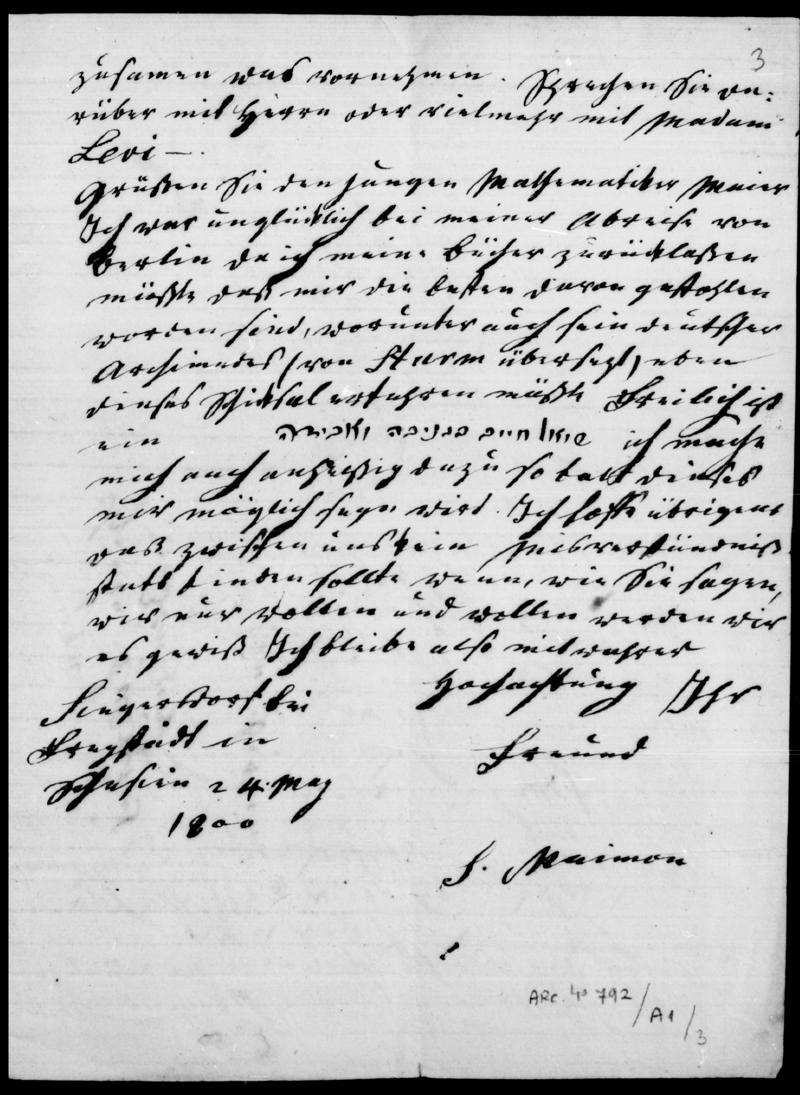 3
zusamen was vornehmen. Sprechen Sie da=
rüber mit Herrn oder vielmehr mit Madam
Levi —.
Grüßen Sie den jungen Mathematiker Maier
Ich war unglücklich bei meiner Abreise von
Berlin da ich meine Bücher zurücklaßen
müßte daß mir die besten davon gestohlen
worden sind, worunter auch sein deutscher
Archimedes (von Sturm übersezt) eben
dieses Schiksal erfahren müßte Freilich ist
ein שואל חייב בגניבה ואבידה ich mache
mich auch anheischig dazu so bald dieses
mir möglich seyn wird. Ich hoffe übrigens
daß zwischen uns kein Misverständniß
statt finden sollte wenn, wie Sie sagen,
wir nur wollen und wollen werden wir
es gewiß Ich bleibe also mit wahrer
Hochachtung Ihr
Freund
Siegersdorf bei
Freystadt in
Schlesien 24. May
1800
S. Maimon
ARC. 4° 792/A1/3